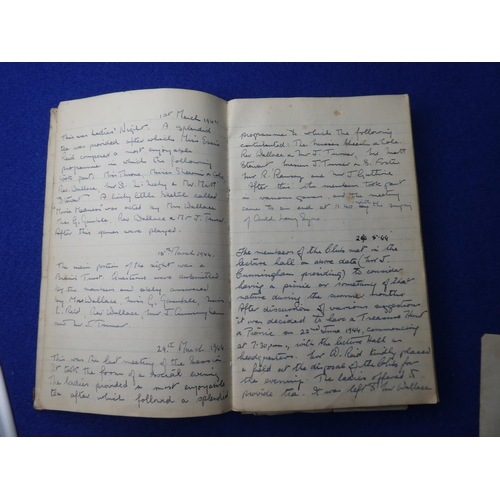 1st March 1944
This was Ladies' Night. A splendid
tea was provided after which Miss
Reid compered a most enjoyable
programme in which the following
took part. Mrs Thorne, Misses Sherwin & Cole,
Rev Wallace, Mr & Mr Matt
Stewart. A lively little sketch called
was acted by Mrs Wallace
Miss G. Gamble, Rev Wallace & Mr J. Turner
After this games were played.
15th March 1944.
The main portion of the night was a
Brains Trust. Questions were submitted
by the members and ably answered
by Mrs Wallace, Miss G. Gamble, Miss
L. Reid, Rev Wallace, Mr J. Cunningham
and Mr J. Turner
29th March 1944
This was the last meeting of the Session
It took the form of a social evening.
The ladies provided a most enjoyable
tea after which followed a splendid
programme to which the following
contributed: The Misses & Cole,
Rev Wallace & Mr J. Turner, Mr Matt
Stewart, Messrs J. Turner & B. Foster
Mr R. Ramsey and Mr J. Guthrie
After this the members took part
in various games, and the meeting
came to an end at 11.40 with the singing
of Auld Lang Syne
The members of the Club met in the
lecture hall on above date (Mr J.
Cunningham presiding) to consider
having a picnic or something of that
nature during the summer months
After discussion of various suggestions
it was decided to have a Treasure Hunt
& Picnic on 22nd June 1944, commencing
at 7.30pm, with the lecture hall as
headquarters. Mr W. Reid kindly placed
a field at the disposal of the Club for
the evening. The ladies offered to
provide tea. It was left to Mr Wallace